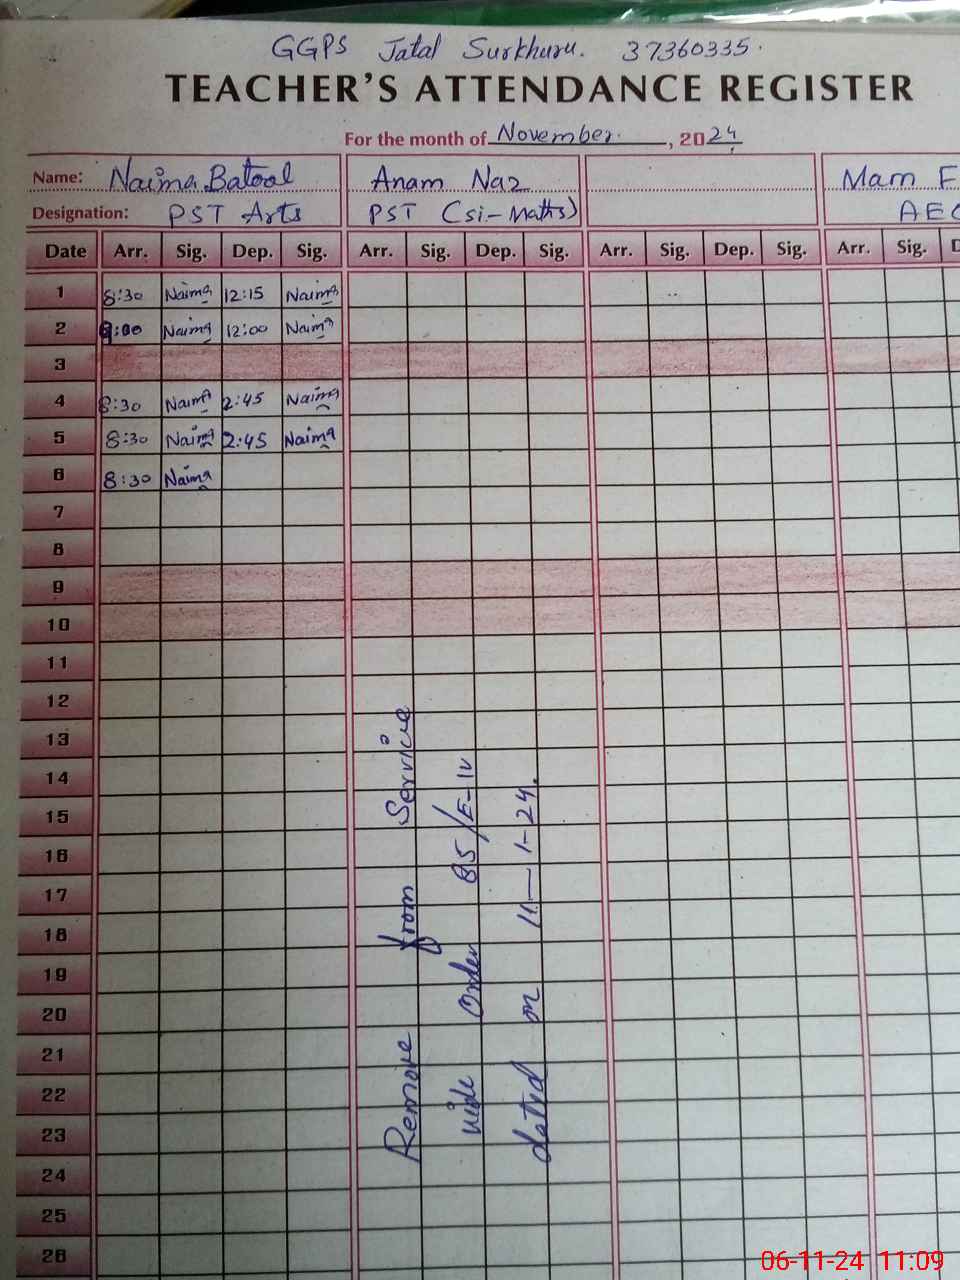 GGPS Jalal Surkhuru. 37360335.
TEACHER'S ATTENDANCE REGISTER
For the month of November. , 2024
Name: Naima Batool Anam Naz Mam F
Designation: PST Arts PST (si-Maths) AEO
Date Arr. Sig. Dep. Sig. Arr. Sig. Dep. Sig. Arr. Sig. Dep. Sig. Arr. Sig. D
1 8:30 Naima 12:15 Naima
2 9:00 Naima 12:00 Naima
3
4 8:30 Naima 2:45 Naima
5 8:30 Naima 2:45 Naima
6 8:30 Naima
7
8
9
10
11
12
13
14
15
16
17
18
19
20
21
22
23
24
25
26
Remove from Service
vide Order 85/E-IV
dated on 11-1-24.
06-11-24 11:09